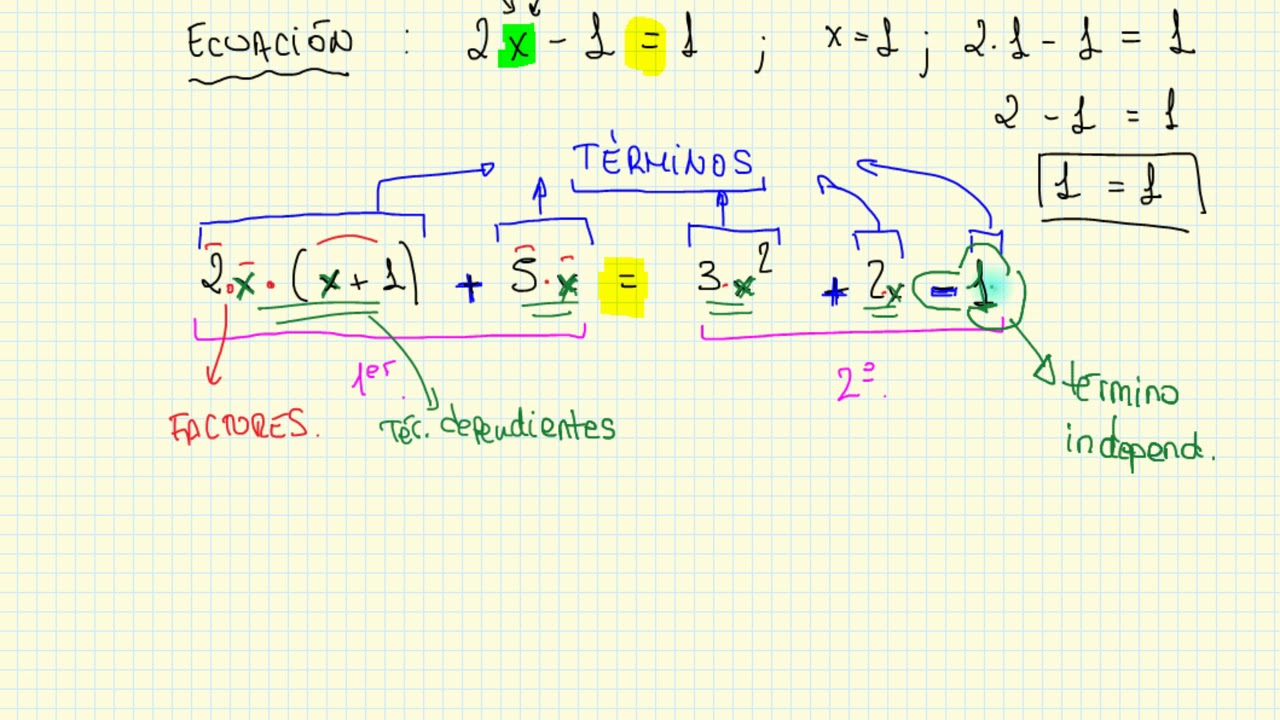 ECUACIÓN : 2x - 1 = 1 ; x = 1 ; 2·1 - 1 = 1
2 - 1 = 1
1 = 1
TÉRMINOS
2·x·(x+1) + 5·x = 3·x² + 2·x - 1
1er. 2º.
FACTORES. Tér. dependientes término
independ.